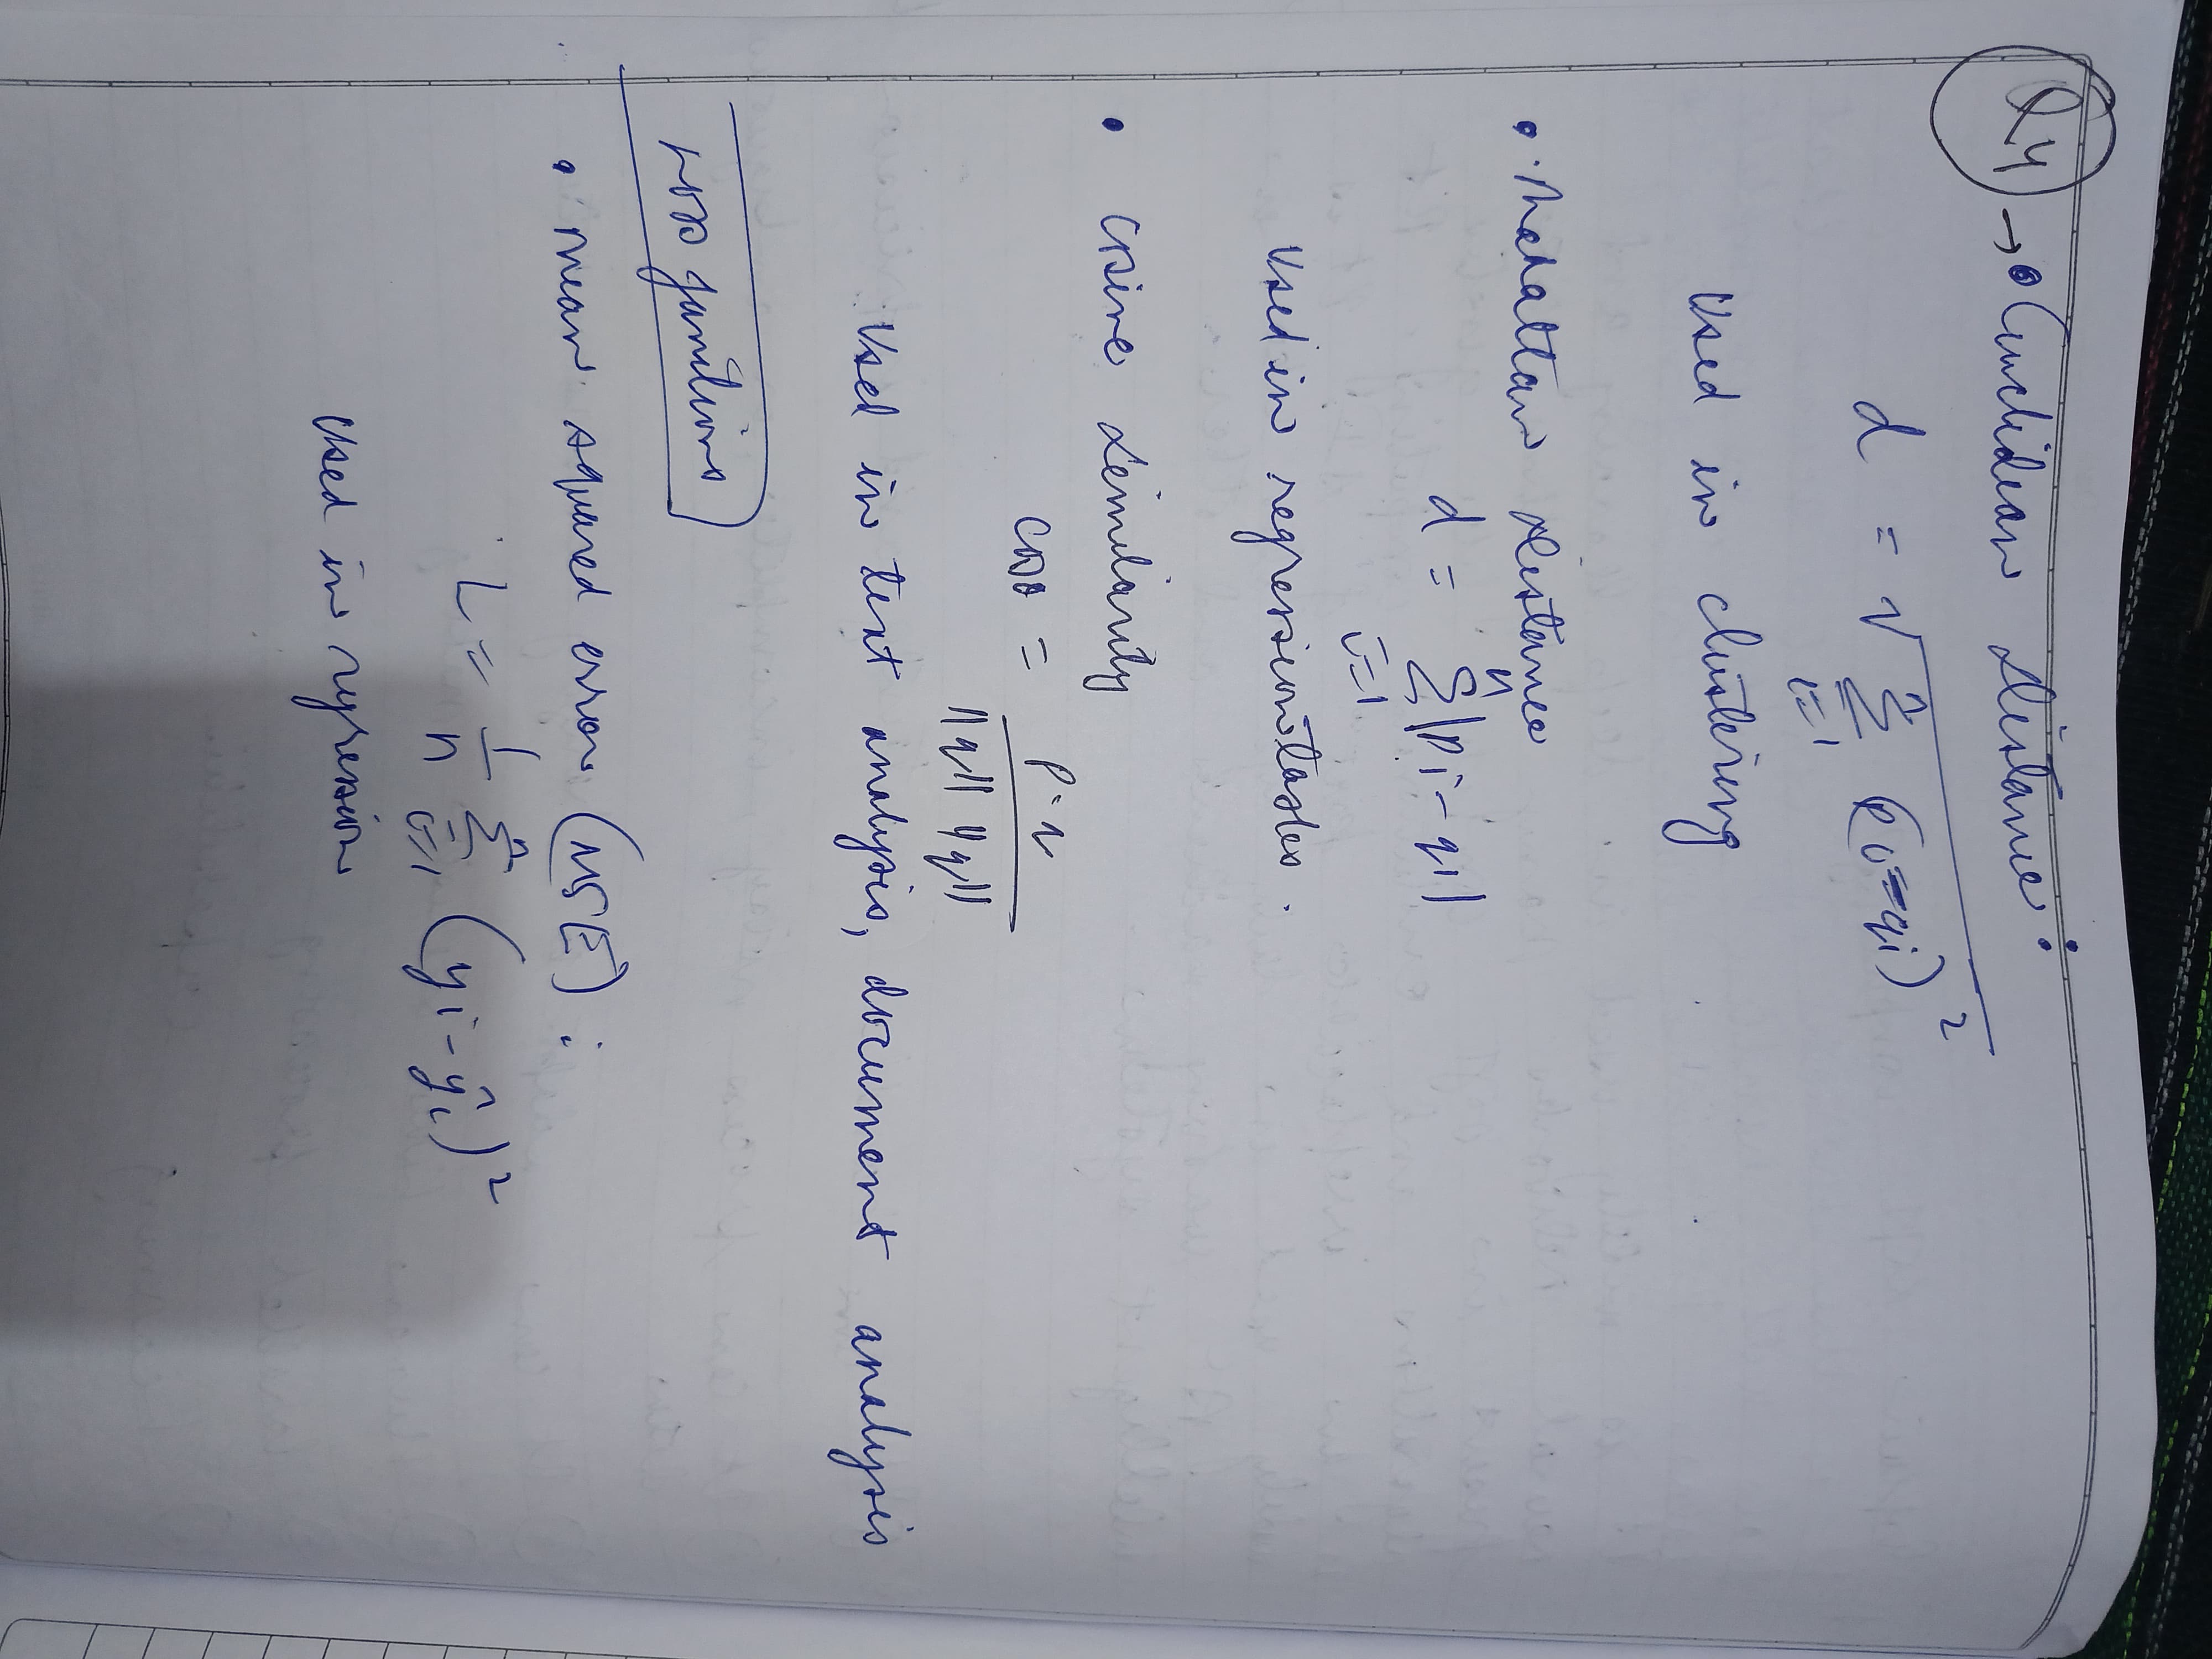 Q4 → • Euclidean Distance :
d = √ Σ_{i=1}^{n} (pi - qi)²
Used in clustering
• Mahattan Distance
d = Σ_{i=1}^{n} |pi - qi|
Used in regression tasks.
• Cosine Similarity
cosθ = p·q / ||q|| ||q||
Used in text analysis, document analysis
Loss functions
• Mean squared error (MSE) :
L = 1/n Σ_{i=1}^{n} (yi - ŷi)²
Used in regression